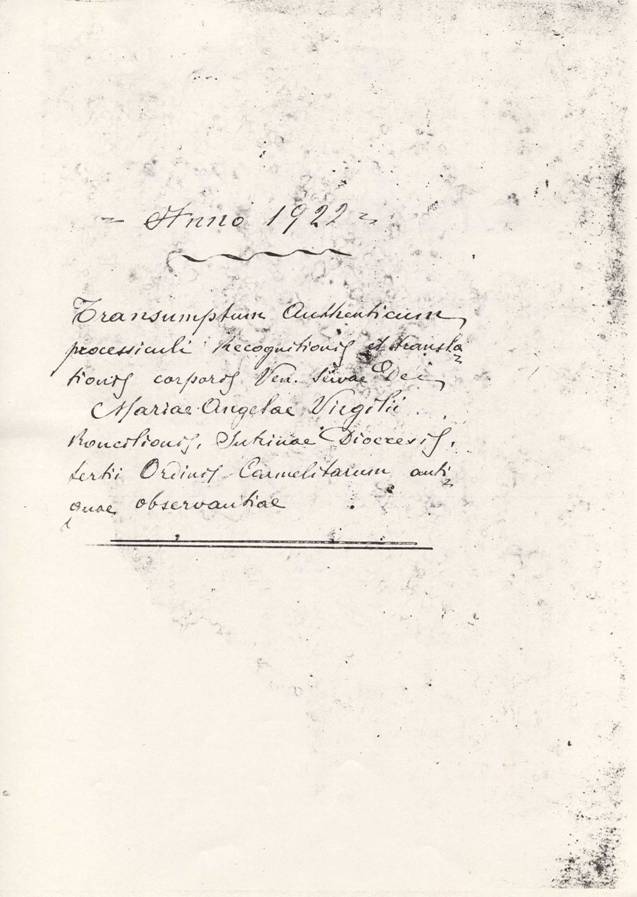 = Anno 1922 =
Transumptum Authenticum
processiculi Recognitionis et transla=
tionis corporis Ven. Servae Dei
Mariae Angelae Virgilii
Roncilionis, Sutrinae Diocesis,
tertii Ordinis Carmelitarum anti=
quae observantiae